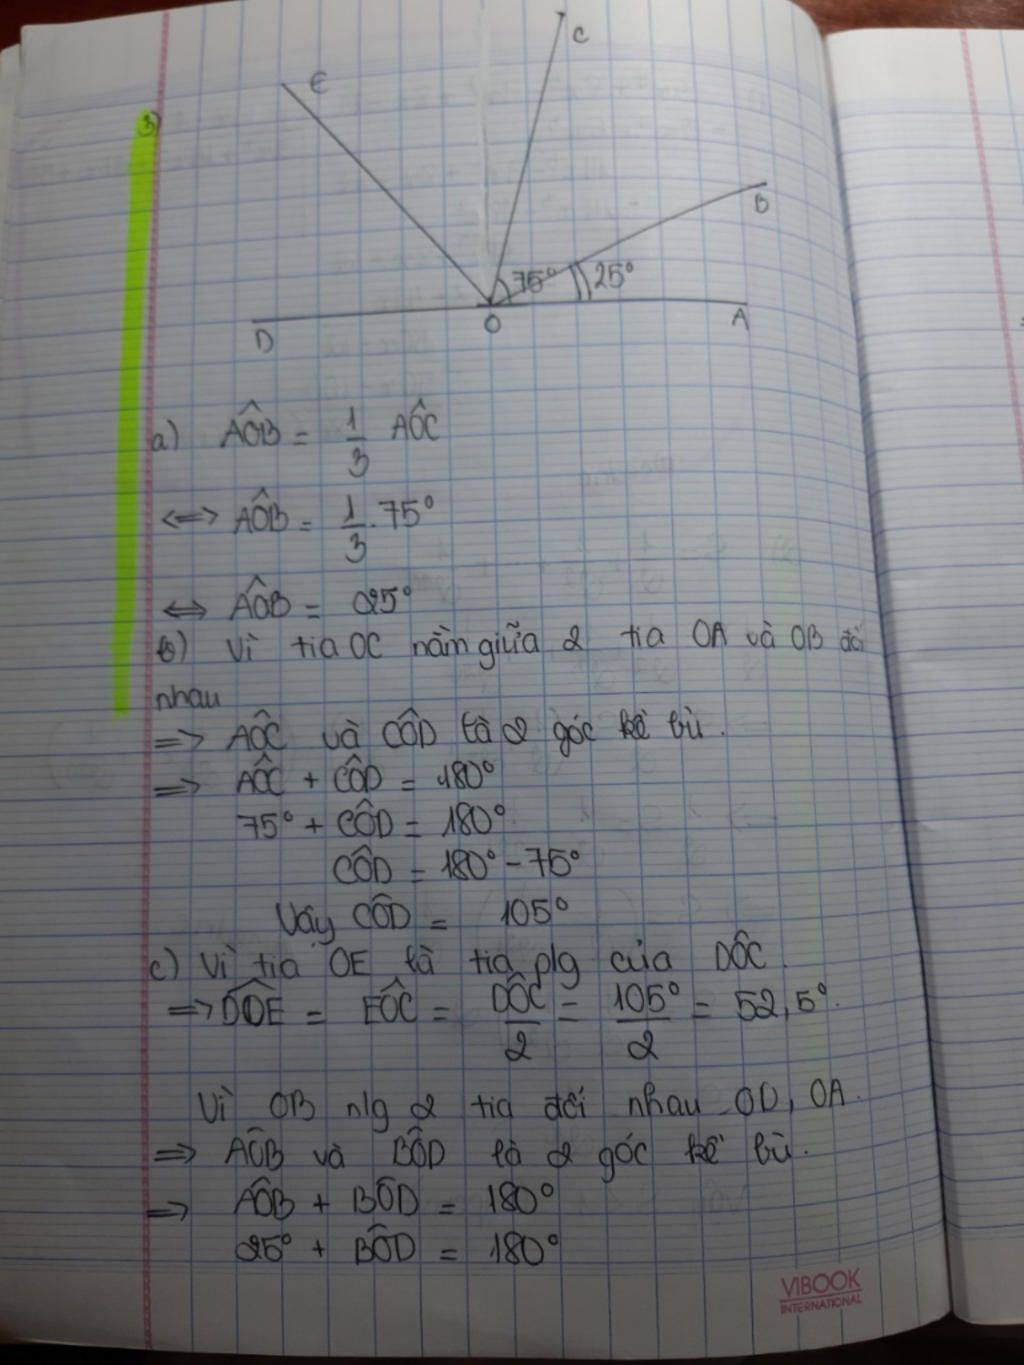 3)
C
E
B
75° 25°
D O A
a) AÔB = 1/3 AÔC
<=> AÔB = 1/3 . 75°
<=> AÔB = 25°
b) Vì tia OC nằm giữa 2 tia OA và OB đối
nhau
=> AÔC và CÔD là 2 góc kề bù.
=> AÔC + CÔD = 180°
75° + CÔD = 180°
CÔD = 180° - 75°
Vậy CÔD = 105°
c) Vì tia OE là tia plg của DÔC.
=> DÔE = EÔC = DÔC/2 = 105°/2 = 52,5°.
Vì OB nlg 2 tia đối nhau OD, OA.
=> AÔB và BÔD là 2 góc kề bù.
=> AÔB + BÔD = 180°
25° + BÔD = 180°
VIBOOK
INTERNATIONAL